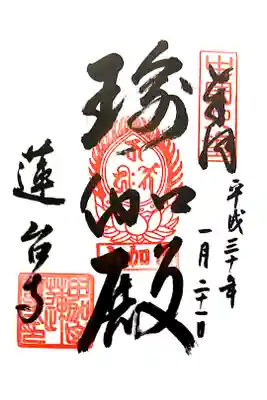 平成三十年
一月二十一日
瑜伽殿
蓮台寺